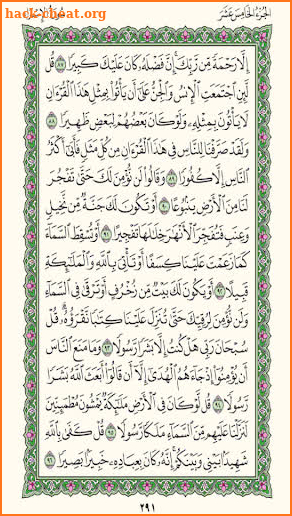 hack-cheat.org
الجزء الخامس عشر
سورة الإسراء
إِلَّا رَحْمَةً مِّن رَّبِّكَ ۚ إِنَّ فَضْلَهُۥ كَانَ عَلَيْكَ كَبِيرًا ٨٧ قُل
لَّئِنِ ٱجْتَمَعَتِ ٱلْإِنسُ وَٱلْجِنُّ عَلَىٰٓ أَن يَأْتُوا۟ بِمِثْلِ هَٰذَا ٱلْقُرْءَانِ
لَا يَأْتُونَ بِمِثْلِهِۦ وَلَوْ كَانَ بَعْضُهُمْ لِبَعْضٍ ظَهِيرًا ٨٨
وَلَقَدْ صَرَّفْنَا لِلنَّاسِ فِى هَٰذَا ٱلْقُرْءَانِ مِن كُلِّ مَثَلٍ فَأَبَىٰٓ أَكْثَرُ
ٱلنَّاسِ إِلَّا كُفُورًا ٨٩ وَقَالُوا۟ لَن نُّؤْمِنَ لَكَ حَتَّىٰ تَفْجُرَ
لَنَا مِنَ ٱلْأَرْضِ يَنۢبُوعًا ٩٠ أَوْ تَكُونَ لَكَ جَنَّةٌ مِّن نَّخِيلٍ
وَعِنَبٍ فَتُفَجِّرَ ٱلْأَنْهَٰرَ خِلَٰلَهَا تَفْجِيرًا ٩١ أَوْ تُسْقِطَ ٱلسَّمَآءَ
كَمَا زَعَمْتَ عَلَيْنَا كِسَفًا أَوْ تَأْتِىَ بِٱللَّهِ وَٱلْمَلَٰٓئِكَةِ
قَبِيلًا ٩٢ أَوْ يَكُونَ لَكَ بَيْتٌ مِّن زُخْرُفٍ أَوْ تَرْقَىٰ فِى ٱلسَّمَآءِ
وَلَن نُّؤْمِنَ لِرُقِيِّكَ حَتَّىٰ تُنَزِّلَ عَلَيْنَا كِتَٰبًا نَّقْرَؤُهُۥ ۗ قُلْ
سُبْحَانَ رَبِّى هَلْ كُنتُ إِلَّا بَشَرًا رَّسُولًا ٩٣ وَمَا مَنَعَ ٱلنَّاسَ
أَن يُؤْمِنُوٓا۟ إِذْ جَآءَهُمُ ٱلْهُدَىٰٓ إِلَّآ أَن قَالُوٓا۟ أَبَعَثَ ٱللَّهُ بَشَرًا
رَّسُولًا ٩٤ قُل لَّوْ كَانَ فِى ٱلْأَرْضِ مَلَٰٓئِكَةٌ يَمْشُونَ مُطْمَئِنِّينَ
لَنَزَّلْنَا عَلَيْهِم مِّنَ ٱلسَّمَآءِ مَلَكًا رَّسُولًا ٩٥ قُلْ كَفَىٰ بِٱللَّهِ
شَهِيدًۢا بَيْنِى وَبَيْنَكُمْ ۚ إِنَّهُۥ كَانَ بِعِبَادِهِۦ خَبِيرًۢا بَصِيرًا ٩٦
٢٩١
hack-cheat.org